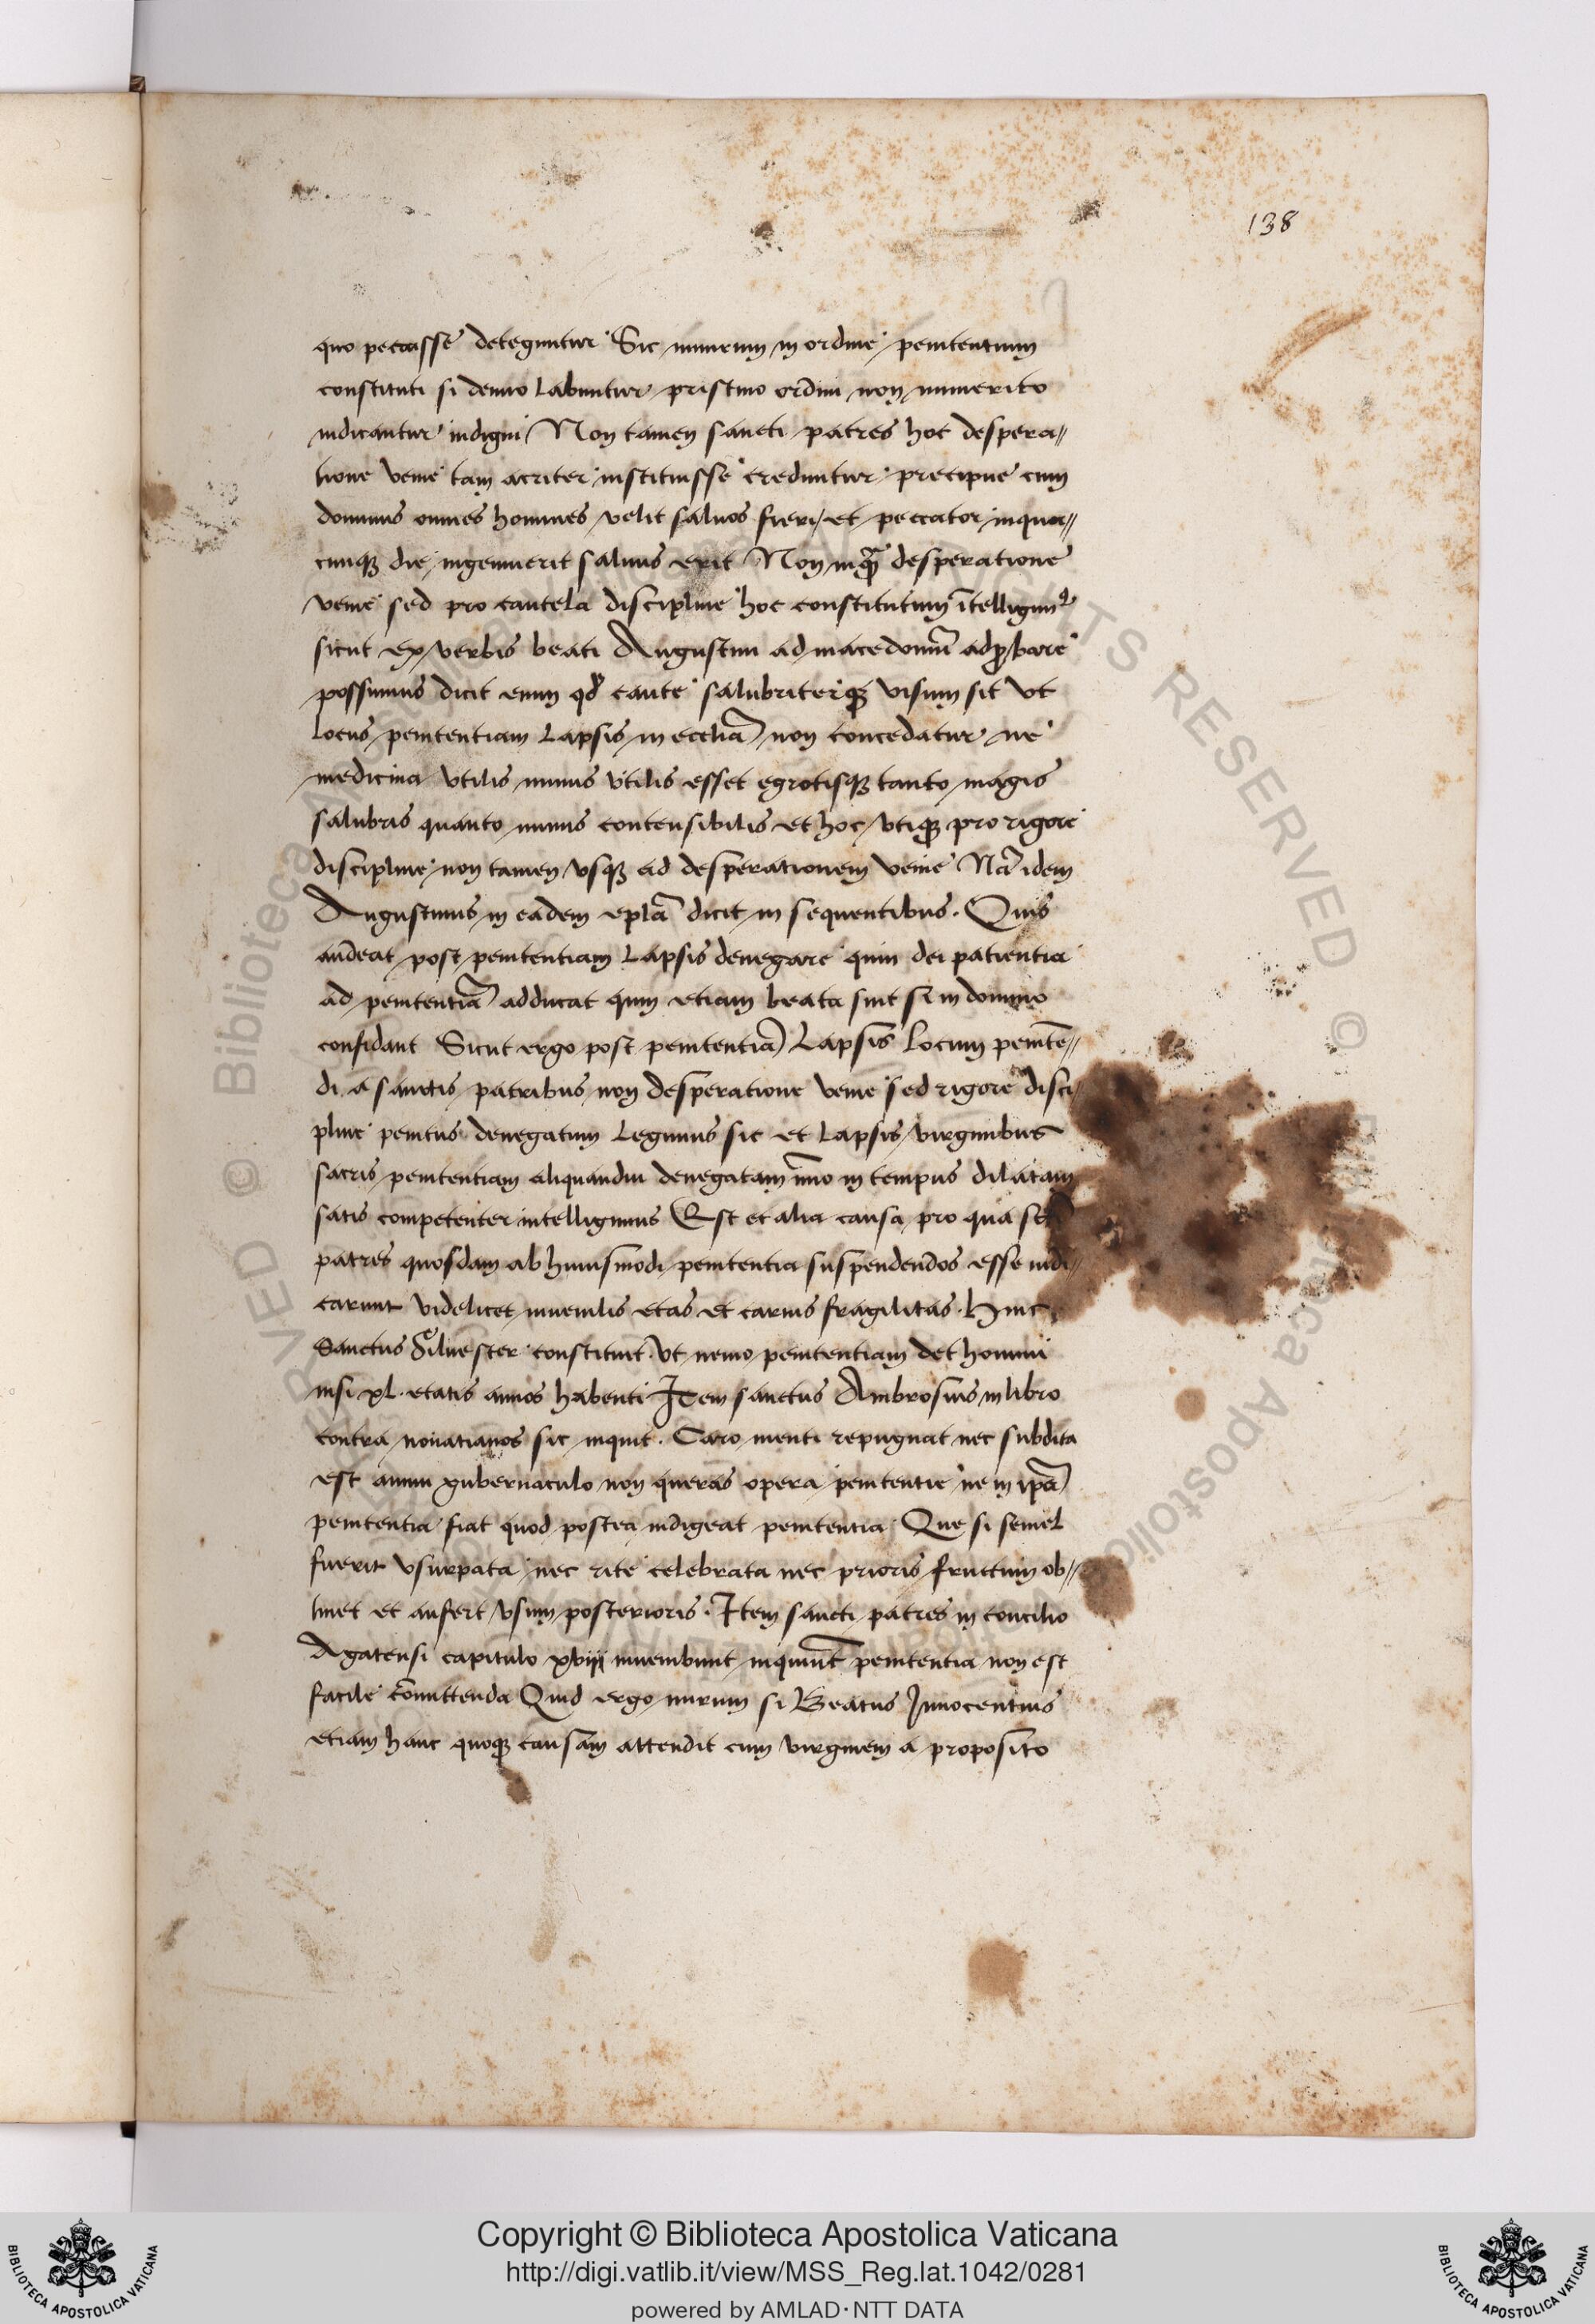 138
quo peccasse deteguntur Sic nimirum in ordine penitentium
constituti si denuo labuntur pristino ordini non immerito
iudicantur indigni Non tamen sancti patres hoc despera//
tione venie tam acriter instituisse creduntur precipue cum
dominus omnes homines velit saluos fieri et peccator in qua//
cunqꝫ die ingemuerit saluus erit Non inquā desperatione
venie sed pro cautela discipline hoc constitutum ītelligimꝰ
sicut ex verbis beati Augustini ad macedoniū adꝓbare
possumus dicit enim qđ caute salubriterqꝫ visum sit vt
locus penitentiam lapsis in eccliā non concedatur ne
medicina vtilis minus vtilis esset egrotisqꝫ tanto magis
salubris quanto minus contensibilis et hoc vtiqꝫ pro rigore
discipline non tamen vsqꝫ ad desperationem venie Nā idem
Augustinus in eadem eplā dicit in sequentibus. Quis
audeat post penitentiam lapsis denegare quin dei patientia
ad penitentiā adducat quin etiam beata sint si in domino
confidant Sicut ergo post penitentiā lapsis locum penitē//
di a sanctis patribus non desperatione venie sed rigore disci
pline penitus denegatum legimus sic et lapsis virginibus
sacris penitentiam aliquandiu denegatam īmo in tempus dilatam
satis competenter intelligimus Est et alia causa pro qua
patres quosdam ab huiusmodi penitentia suspendendos esse iudi//
carunt videlicet iuuenilis etas et carnis fragilitas. Hinc
Sanctus Siluester constituit. vt nemo penitentiam det homini
nisi xl. etatis annos habenti Item sanctus Ambrosius in libro
contra nouatianos sic inquit. Caro menti repugnat nec subdita
est animi gubernaculo non queras opera penitentie ne in ipā
penitentia fiat quod postea indigeat penitentia Que si semel
fuerit vsurpata nec rite celebrata nec prioris fructum ob//
tinet et aufert vsum posterioris. Item sancti patres in concilio
Agatensi capitulo xviij iuuenibunt inquiūt penitentia non est
facile cōmittenda Quid ergo mirum si Beatus Innocentius
etiam hanc quoqꝫ causam attendit cum virginem a proposito
Copyright © Biblioteca Apostolica Vaticana
http://digi.vatlib.it/view/MSS_Reg.lat.1042/0281
powered by AMLAD·NTT DATA
BIBLIOTECA APOSTOLICA VATICANA
BIBLIOTECA APOSTOLICA VATICANA